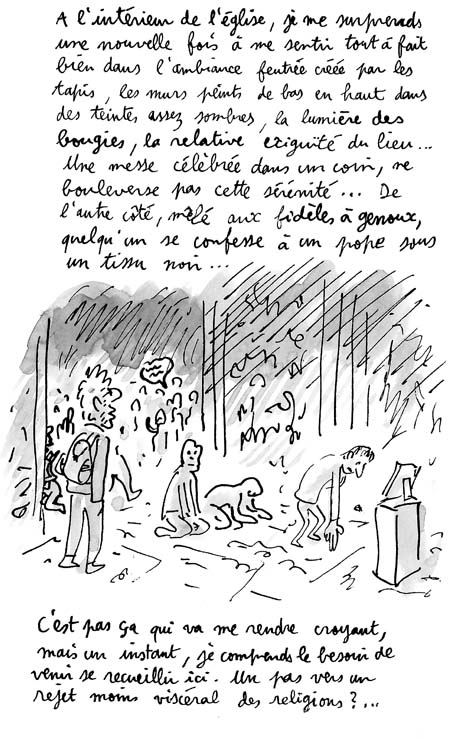 A l'intérieur de l'église, je me surprends
une nouvelle fois à me sentir tout à fait
bien dans l'ambiance feutrée créée par les
tapis, les murs peints de bas en haut dans
des teintes assez sombres, la lumière des
bougies, la relative exiguïté du lieu...
Une messe célébrée dans un coin, ne
bouleverse pas cette sérénité... De
l'autre côté, mêlé aux fidèles à genoux,
quelqu'un se confesse à un pope sous
un tissu noir...
C'est pas ça qui va me rendre croyant,
mais un instant, je comprends le besoin de
venir se recueillir ici. Un pas vers un
rejet moins viscéral des religions?...